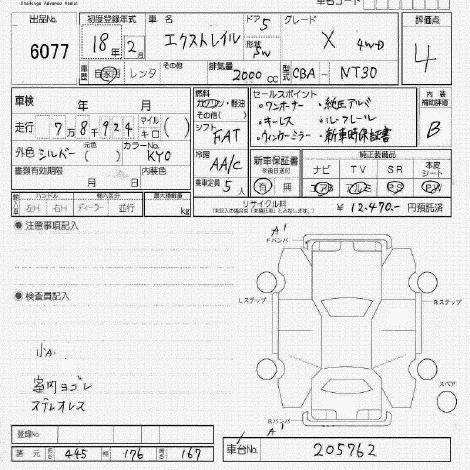 出品No. 初度登録年式 車名 ドア グレード 評価点
6077 18年 2月 エクストレイル 5 X 4WD 4
形状 5W
車歴 自家用 レンタ その他 排気量 2000 cc 型式 CBA- NT30
車検 年 月 燃料 ガソリン・軽油 その他( ) セールスポイント 内装 補助評価
・ワンオーナー ・純正アルミ B
走行 7万8千924 マイル キロ ( ) シフト FAT ・キーレス ・ルーフレール
・ウィンカーミラー ・新車時保証書
外色 シルバー 元色( ) カラーNo. KY0 冷房 AA/C 新車保証書 純正装備品
ナビ TV SR 本皮シート
書類有効期限 年 月 日 内装色 乗車定員 5人 有・無 エアB アルミ P.S P.W
ハンドル 輸入区分 最大積載量 リサイクル料
左H 右H ディーラー 並行 kg ¥ 12.470- 円預託済
注意事項記入 A'
Fバンパ
Lステップ Rステップ
検査員記入
小A.
室内ヨゴレ
ステレオレス
スペア
Rバンパ
A'
登録No
諸元 長さ 445 幅 176 高さ 167 車台No. 205762